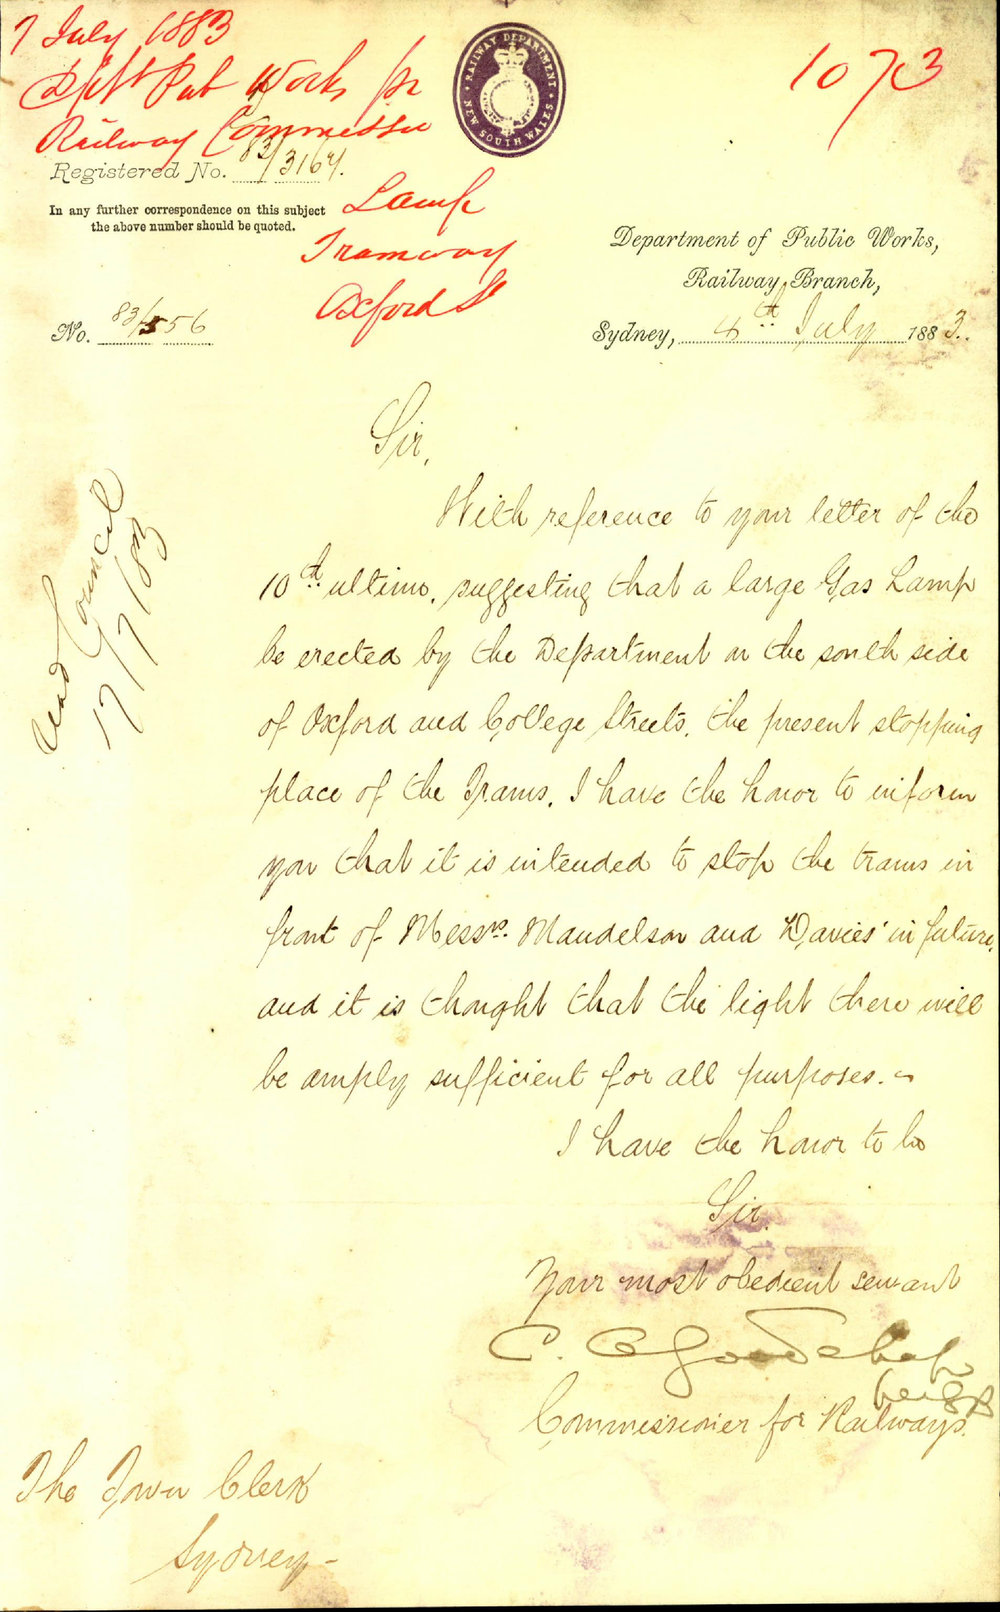 7 July 1883
Dept Pub Works for
Railway Commissr
1073
RAILWAY DEPARTMENT
NEW SOUTH WALES
Registered No. 83/3164.
In any further correspondence on this subject
the above number should be quoted.
Lamp
Tramway
Oxford St
Department of Public Works,
Railway Branch,
No. 83/556
Sydney, 4th July 1883.
Sir,
With reference to your letter of the
10th ultimo, suggesting that a large Gas Lamp
be erected by the Department on the south side
of Oxford and College Streets, the present stopping
place of the Trams, I have the honor to inform
you that it is intended to stop the trams in
front of Messrs. Mandelson and Davies' in future,
and it is thought that the light there will
be amply sufficient for all purposes. ~
I have the honor to be
Sir,
Your most obedient servant
C. A. Goodchap
Commissioner for Railways.
Read Council
17/7/83
The Town Clerk
Sydney -